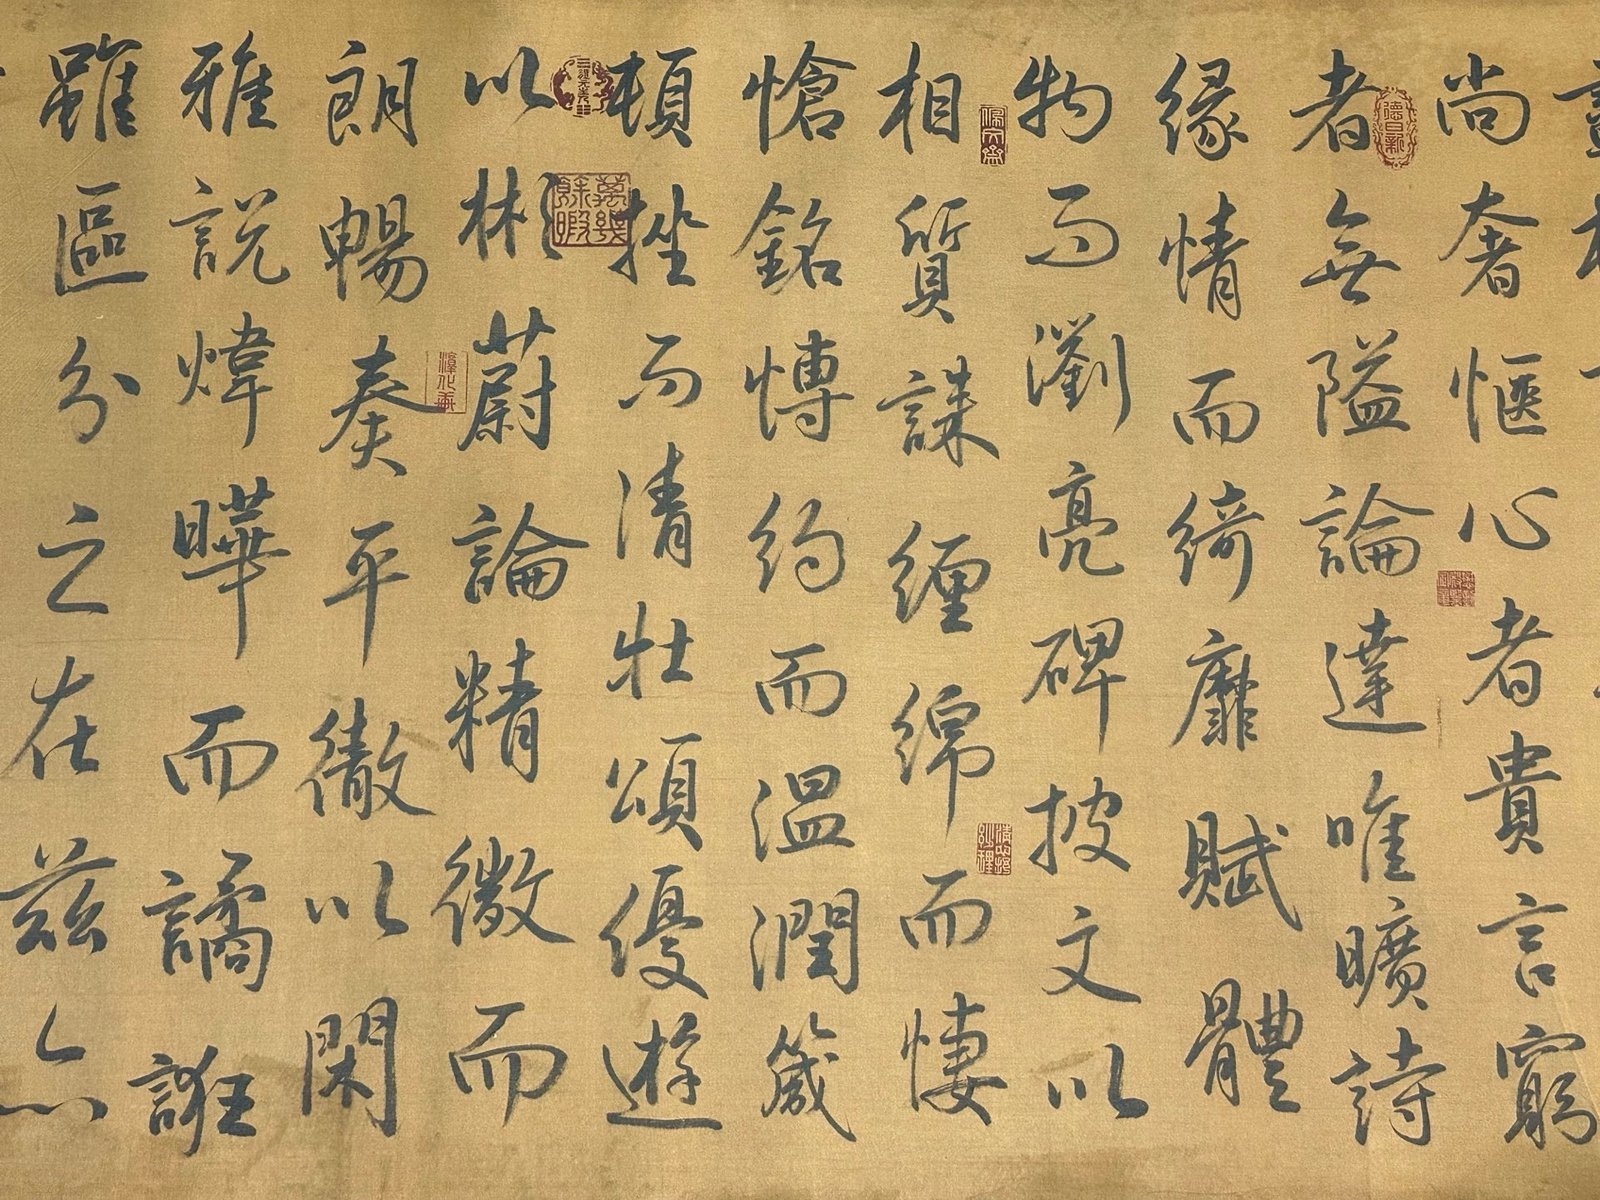 尚奢愜心者貴言窮
者無隘論達唯曠詩
緣情而綺靡賦體
物而瀏亮碑披文以
相質誄纏綿而悽
愴銘愽約而溫潤箴
頓挫而清壯頌優遊
以彬蔚論精微而
朗暢奏平徹以閑
雅說煒曄而譎誑
雖區分之在茲亦
德日新
佩文齋
萬幾餘暇
淳化軒